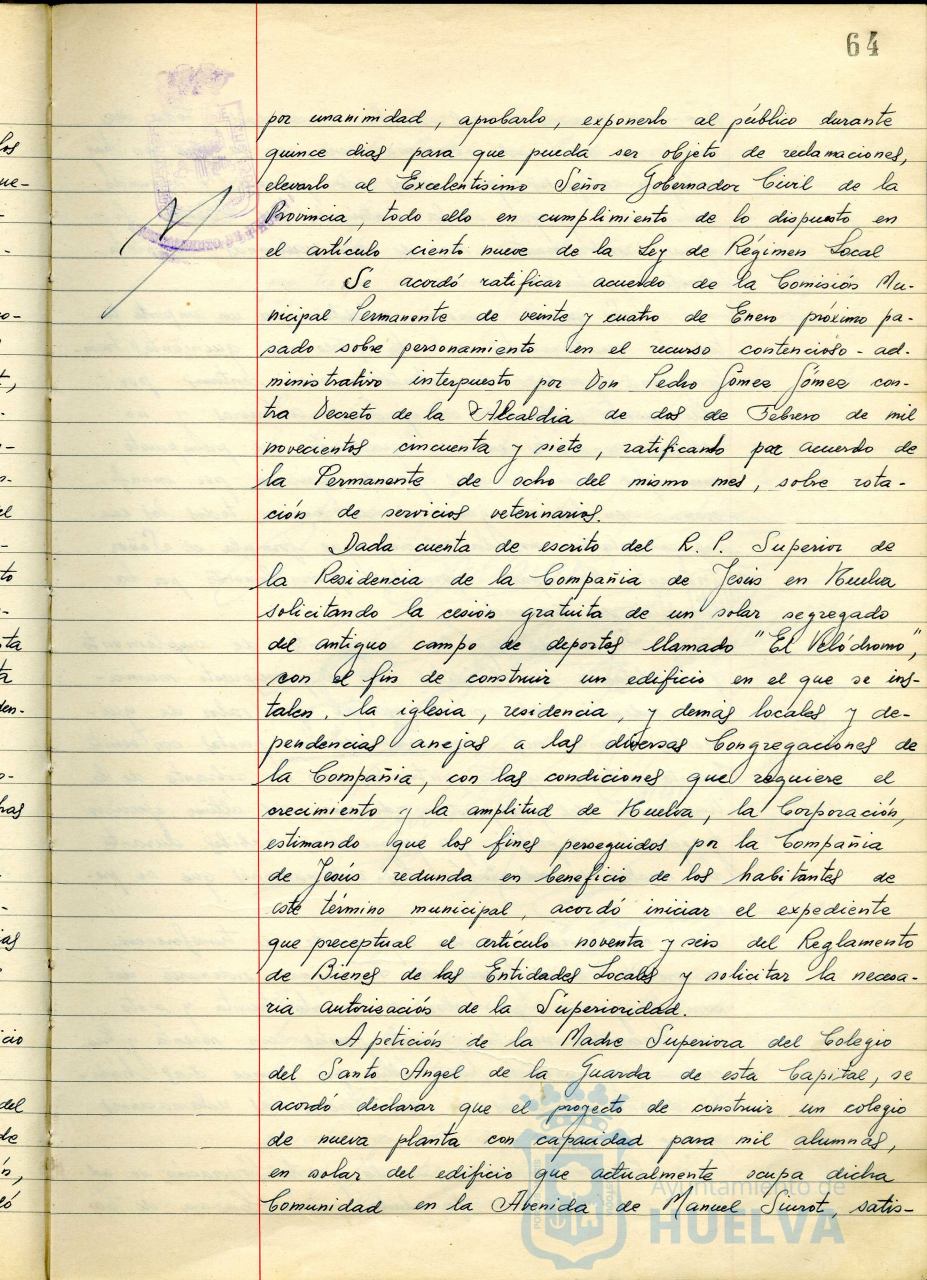 64
por unanimidad, aprobarlo, exponerlo al público durante
quince dias para que pueda ser objeto de reclamaciones,
elevarlo al Excelentísimo Señor Gobernador Civil de la
Provincia, todo ello en cumplimiento de lo dispuesto en
el artículo ciento nueve de la Ley de Régimen Local
Se acordó ratificar acuerdo de la Comisión Mu-
nicipal Permanente de veinte y cuatro de Enero próximo pa-
sado sobre personamiento en el recurso contencioso-ad-
ministrativo interpuesto por Don Pedro Gómez Gómez con-
tra Decreto de la Alcaldia de dos de Febrero de mil
novecientos cincuenta y siete, ratificando por acuerdo de
la Permanente de ocho del mismo mes, sobre rota-
ción de servicios veterinarios.
Dada cuenta de escrito del R. P. Superior de
la Residencia de la Compañia de Jesús en Huelva
solicitando la cesión gratuita de un solar segregado
del antiguo campo de deportes llamado "El Velódromo",
con el fin de construir un edificio en el que se ins-
talen, la iglesia, residencia, y demás locales y de-
pendencias anejas a las diversas Congregaciones de
la Compañia, con las condiciones que requiere el
crecimiento y la amplitud de Huelva, la Corporación,
estimando que los fines perseguidos por la Compañia
de Jesús redunda en beneficio de los habitantes de
este término municipal, acordó iniciar el expediente
que preceptual el artículo noventa y seis del Reglamento
de Bienes de las Entidades Locales y solicitar la necesa-
ria autorisación de la Superioridad.
A petición de la Madre Superiora del Colegio
del Santo Angel de la Guarda de esta Capital, se
acordó declarar que el proyecto de construir un colegio
de nueva planta con capacidad para mil alumnas,
en solar del edificio que actualmente ocupa dicha
Comunidad en la Avenida de Manuel Siurot, satis-
Ayuntamiento de
HUELVA